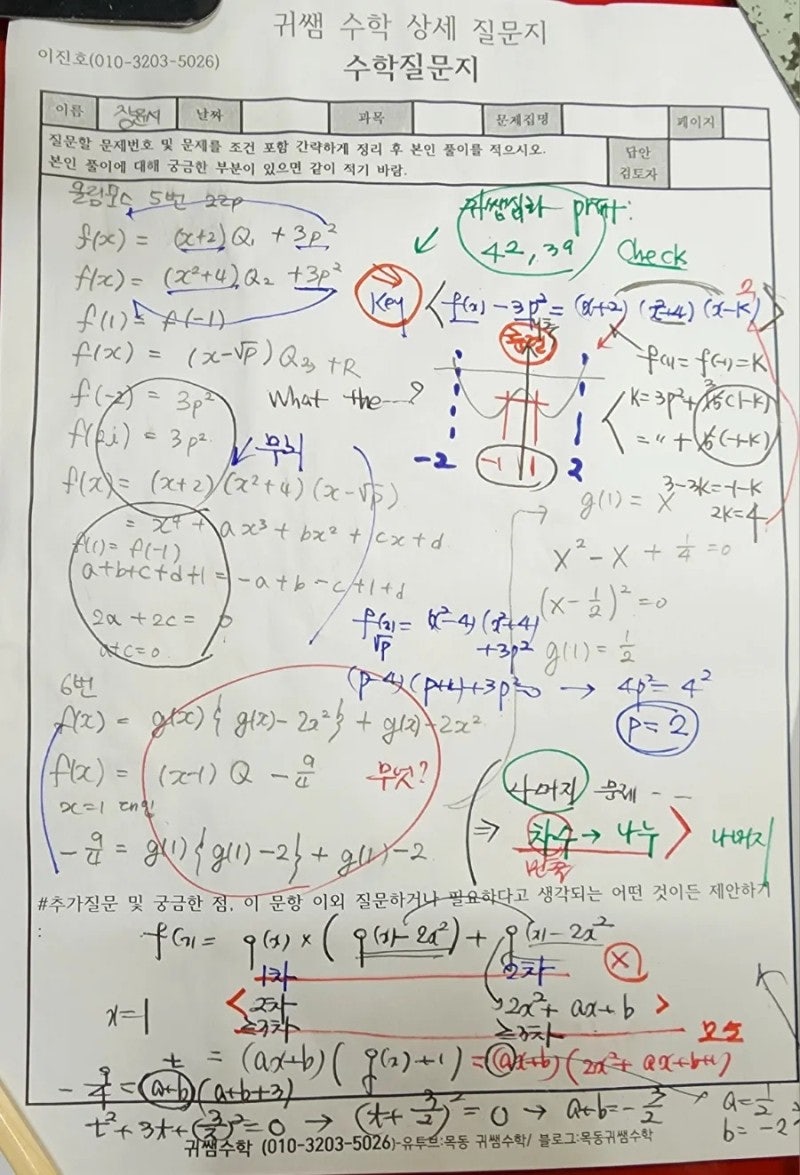 귀쌤 수학 상세 질문지
이진호(010-3203-5026)
수학질문지
이름 날짜 과목 문제집명 페이지
질문할 문제번호 및 문제를 조건 포함 간략하게 정리 후 본인 풀이를 적으시오.
본인 풀이에 대해 궁금한 부분이 있으면 같이 적기 바람.
답안
검토자
올림포스 5번 22p
f(x) = (x+2)Q₁ + 3p²
f(x) = (x²+4)Q₂ + 3p²
f(1) = f(-1)
f(x) = (x-√p)Q₃ + R
f(-2) = 3p²
f(2i) = 3p²
What the---?
무리
f(x) = (x+2)(x²+4)(x-√p)
= x⁴ + ax³ + bx² + cx + d
f(1) = f(-1)
a+b+c+d+1 = -a+b-c+1+d
2a + 2c = 0
a+c=0
귀쌤심화 print:
42, 39
Check
Key
f(x) - 3p² = (x+2)(x²+4)(x-k)
2
f(1) = f(-1) = K
K = 3p² + 15(1-K)
3
= 〃 + 5(-1-K)
-2 -1 1 2
3-3K=-1-K
2K=4
g(1) = X
X² - X + 1/4 = 0
(X - 1/2)² = 0
g(1) = 1/2
f(x) = (x²-4)(x²+4)
√p +3p²
(p-4)(p+4)+3p²=0 → 4p² = 4²
p = 2
6번
f(x) = g(x){g(x)-2x²} + g(x)-2x²
f(x) = (x-1)Q - 9/4
무엇?
x=1 대입
-9/4 = g(1){g(1)-2} + g(1)-2
나머지 문제 - -
⇒ 차수 → 나누 나머지
#추가질문 및 궁금한 점, 이 문항 이외 질문하거나 필요하다고 생각되는 어떤 것이든 제안하기
:
f(x) = g(x) × (g(x)-2x²) + g(x)-2x²
1차 2차 X
2차 2x² + ax+b
≥3차 ≥3차 모순
x=1
t = (ax+b)(g(x)+1) = (ax+b)(2x²+ax+b+1)
-9/4 = (a+b)(a+b+3)
t²+3t+(3/2)²=0 → (t+3/2)²=0 → a+b=-3/2
a=1/2
b=-2
귀쌤수학 (010-3203-5026)-유투브:목동 귀쌤수학/ 블로그:목동귀쌤수학